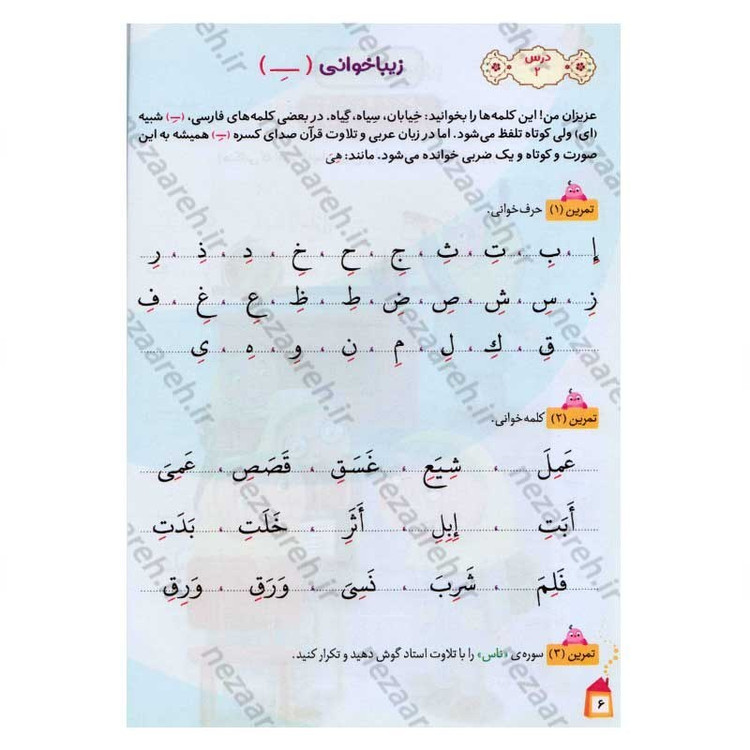 درس ۲
زیباخوانی ( ـِـ )
عزیزان من! این کلمه‌ها را بخوانید: خِیابان، سِیاه، گِیاه. در بعضی کلمه‌های فارسی، (ـِـ) شبیه
(ای) ولی کوتاه تلفظ می‌شود. اما در زبان عربی و تلاوت قرآن صدای کسره (ـِـ) همیشه به این
صورت و کوتاه و یک ضربی خوانده می‌شود. مانند: هِیَ
تمرین (۱) حرف‌خوانی.
إِ بِ تِ ثِ جِ حِ خِ دِ ذِ رِ
زِ سِ شِ صِ ضِ طِ ظِ عِ غِ فِ
قِ كِ لِ مِ نِ وِ هِ یِ
تمرین (۲) کلمه‌خوانی.
عَمِلَ شِیَعِ غَسَقِ قَصَصِ عَمِیَ
أَبَتِ إِبِلِ أَثَرِ خَلَتِ بَدَتِ
فَلِمَ شَرِبَ نَسِیَ وَرَقِ وَرِقِ
تمرین (۳) سوره‌ی «ناس» را با تلاوت استاد گوش دهید و تکرار کنید.
۶
nezaareh.ir